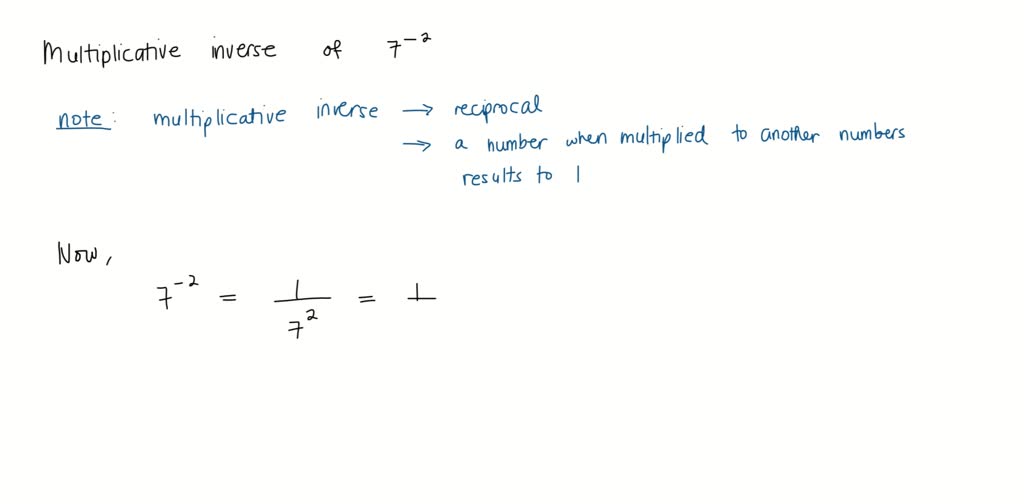 Multiplicative inverse of 7⁻²
note: multiplicative inverse → reciprocal
→ a number when multiplied to another numbers
results to 1
Now,
7⁻² = 1/7² = 1